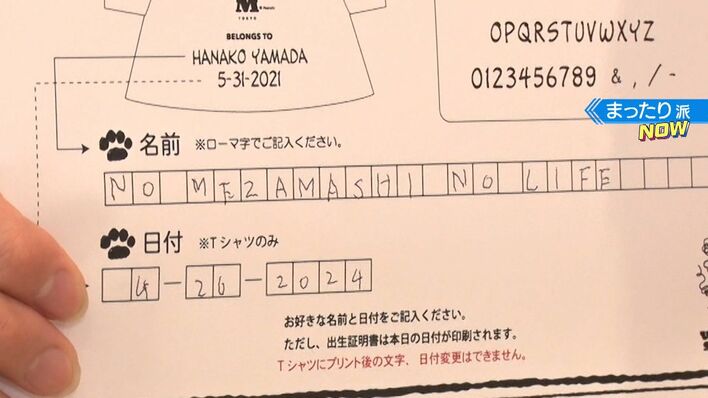 M
TOKYO
BELONGS TO
HANAKO YAMADA
5-31-2021
OPQRSTUVWXYZ
0123456789 & , / -
まったり派
NOW
名前 ※ローマ字でご記入ください。
NO MEZAMASHI NO LIFE
日付 ※Tシャツのみ
4-26-2024
お好きな名前と日付をご記入ください。
ただし、出生証明書は本日の日付が印刷されます。
Tシャツにプリント後の文字、日付変更はできません。